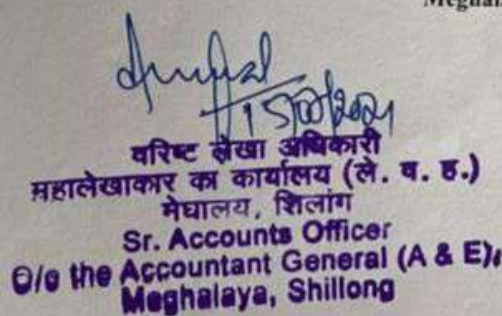 वरिष्ट लेखा अधिकारी
महालेखाकार का कार्यालय (ले. व. ह.)
मेघालय, शिलांग
Sr. Accounts Officer
O/o the Accountant General (A & E),
Meghalaya, Shillong